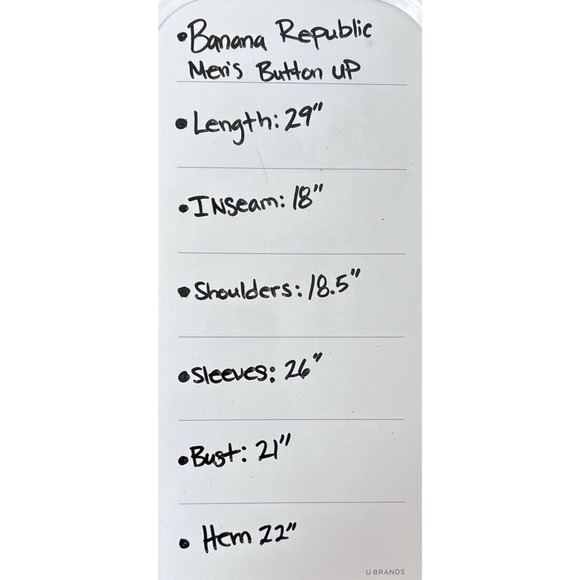 •Banana Republic
Men's Button up
•Length: 29"
•INseam: 18"
•Shoulders: 18.5"
•Sleeves: 26"
•Bust: 21"
• Hem 22"
U BRANDS